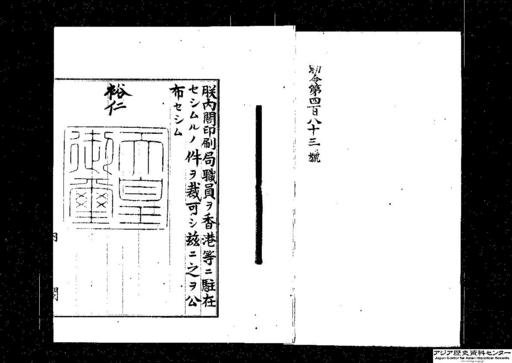 勅令第四百八十三號
朕内閣印刷局職員ヲ香港等ニ駐在
セシムルノ件ヲ裁可シ茲ニ之ヲ公
布セシム
裕仁
天皇
御璽
内閣
アジア歴史資料センター
Japan Center for Asian Historical Records